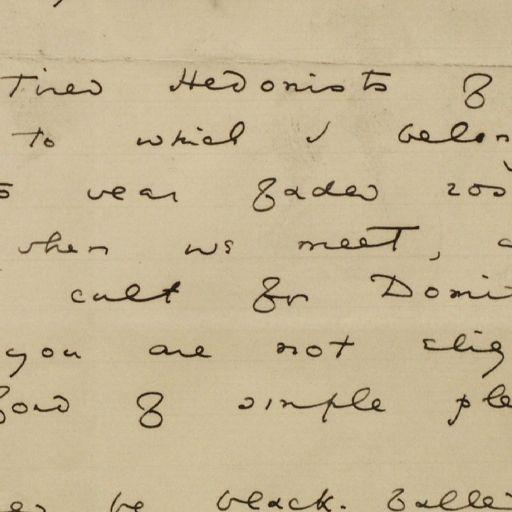 Tired Hedonists of
to which I belon
wear faded ros
when we meet, a
cult for Domit
you are not elig
fond of simple ple
be black-balle